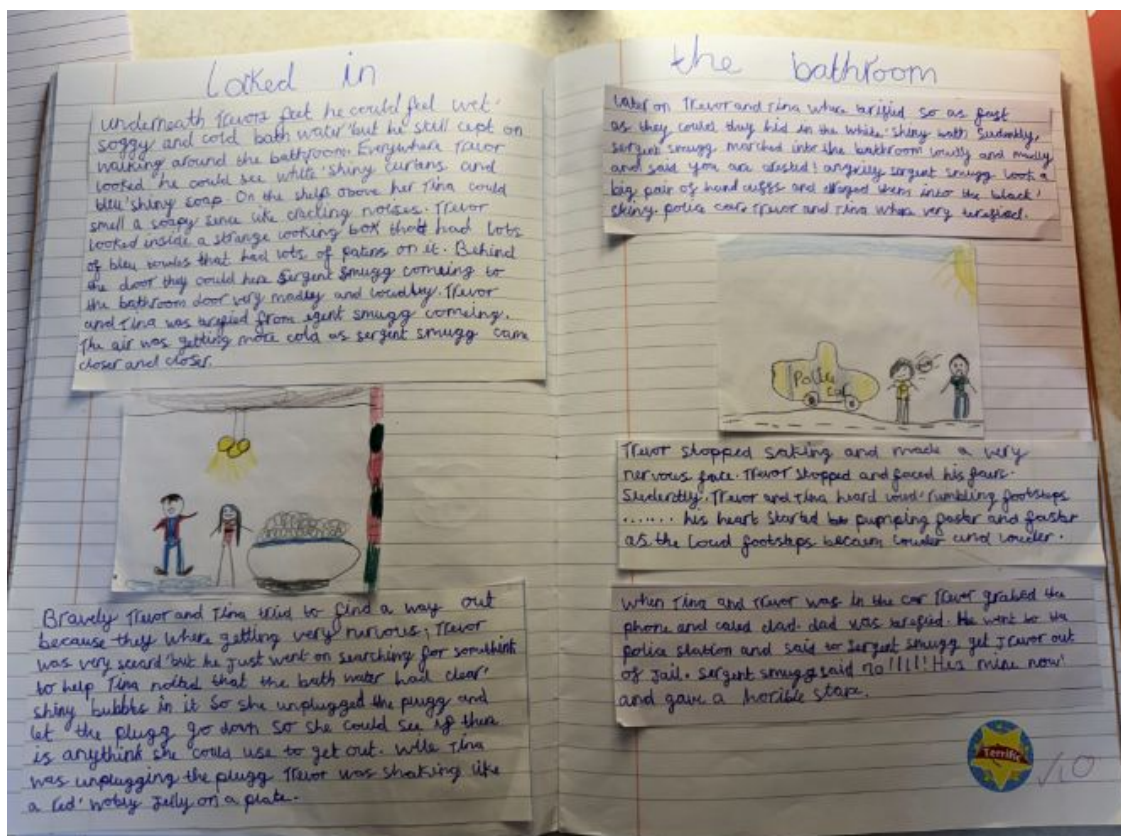 Locked in
underneath Trevors feet he could feel wet'
soggy and cold bath water but he still cept on
walking around the bathroom. Everywhere Trevor
looked he could see white' shiny curtans and
bleu' shiny soap. On the shelf above her Tina could
smell a soapy since like cracling noises. Trevor
looked inside a strange looking box that had lots
of bleu towles that had lots of patans on it. Behind
the door they could here Sergent Smugg comeing to
the bathroom door very madley and loudley. Trevor
and Tina was terefied from sgent smugg comeing.
The air was getting more cold as sergent smugg came
closer and closer.
Bravely Trevor and Tina tried to find a way out
because they where getting very nurvious, Trevor
was very sceard but he just went on searching for somethink
to help Tina notied that the bath water had clear'
shiny bubbls in it So she unplugged the plugg and
let the plugg go down so she could see if there
is anythink she could use to get out. Wile Tina
was unplugging the plugg Trevor was shaking like
a red' wobly Jelly on a plate.
the bathroom
Later on Trevor and Tina where terified so as fast
as they could they hid in the white' shiny bath Suddenly,
sergent smugg marched into the bathroom loudly and madly
and said you are arested! angrily sergent smugg took a
big pair of hand cuffs and them into the black'
shiny police care Trevor and Tina where very terefied.
Police
car
Trevor stopped saking and made a very
nervous face. Trevor stopped and faced his fears.
Sudently' Trevor and Tina heard loud' rumbling footsteps
....... his heart started to pumping faster and faster
as the loud footsteps becaim louder and louder.
When Tina and Trevor was in the car Trevor grabed the
phone and caled dad. dad was terefied. He went to the
police station and said to Sergent smugg get Trevor out
of Jail. Sergent smugg said no!!!!! Hes mine now'
and gave a horible stare.
Terrific